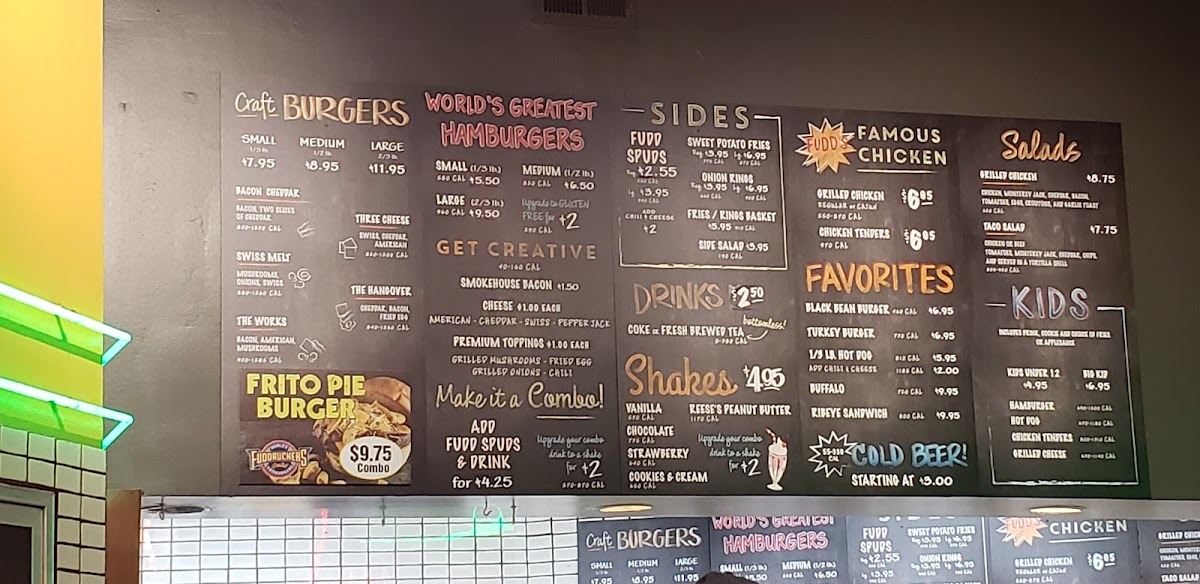 Craft BURGERS
SMALL MEDIUM LARGE
1/3 lb 1/2 lb 2/3 lb
$7.95 $8.95 $11.95
BACON CHEDDAR
BACON, TWO SLICES
OF CHEDDAR
THREE CHEESE
SWISS, CHEDDAR,
AMERICAN
SWISS MELT
MUSHROOMS,
ONIONS, SWISS
THE HANGOVER
CHEDDAR, BACON,
FRIED EGG
THE WORKS
BACON, AMERICAN,
MUSHROOMS
FRITO PIE
BURGER
FUDDRUCKERS
$9.75
Combo
WORLD'S GREATEST
HAMBURGERS
SMALL (1/3 lb) MEDIUM (1/2 lb)
$5.50 $6.50
LARGE (2/3 lb)
$9.50
Upgrade to GLUTEN
FREE for $2
GET CREATIVE
40-160 CAL
SMOKEHOUSE BACON $1.50
CHEESE $1.00 EACH
AMERICAN - CHEDDAR - SWISS - PEPPER JACK
PREMIUM TOPPINGS $1.00 EACH
GRILLED MUSHROOMS - FRIED EGG
GRILLED ONIONS - CHILI
Make it a Combo!
ADD
FUDD SPUDS
& DRINK
for $4.25
Upgrade your combo
drink to a shake
for $2
570-870 CAL
SIDES
FUDD
SPUDS
Reg $2.55
Lg $3.95
ADD
CHILI & CHEESE
$2
SWEET POTATO FRIES
Reg $3.95 Lg $6.95
ONION RINGS
Reg $3.95 Lg $6.95
FRIES / RINGS BASKET
$5.95
SIDE SALAD $3.95
190 CAL
DRINKS $2.50
bottomless!
COKE or FRESH BREWED TEA
Shakes $4.95
VANILLA
CHOCOLATE
STRAWBERRY
COOKIES & CREAM
REESE'S PEANUT BUTTER
1170 CAL
Upgrade your combo
drink to a shake
for $2
FUDD'S FAMOUS
CHICKEN
GRILLED CHICKEN $6.95
REGULAR or CAJUN
550-870 CAL
CHICKEN TENDERS $6.95
970 CAL
FAVORITES
BLACK BEAN BURGER $6.95
TURKEY BURGER 770 CAL $6.95
1/3 LB. HOT DOG 810 CAL $5.95
ADD CHILI & CHEESE 1185 CAL $2.00
BUFFALO 720 CAL $9.95
RIBEYE SANDWICH 800 CAL $9.95
COLD BEER!
STARTING AT $3.00
Salads
GRILLED CHICKEN $8.75
CHICKEN, MONTEREY JACK, CHEDDAR, BACON,
TOMATOES, EGG, CROUTONS, AND GARLIC TOAST
TACO SALAD $7.75
CHICKEN OR BEEF
TOMATOES, MONTEREY JACK, CHEDDAR, CHIPS,
AND SERVED IN A TORTILLA SHELL
KIDS
INCLUDES DRINK, COOKIE AND CHOICE OF FRIES
OR APPLESAUCE
KIDS UNDER 12 BIG KID
$4.95 $6.95
HAMBURGER
HOT DOG
CHICKEN TENDERS
GRILLED CHEESE
Craft BURGERS
SMALL MEDIUM LARGE
$7.95 $8.95 $11.95
WORLD'S GREATEST
HAMBURGERS
SMALL (1/3 lb) MEDIUM (1/2 lb)
$6.50
FUDD
SPUDS
$2.55
$3.95
SWEET POTATO FRIES
ONION RINGS
FUDD'S
CHICKEN
GRILLED CHICKEN $6.95
CHICKEN